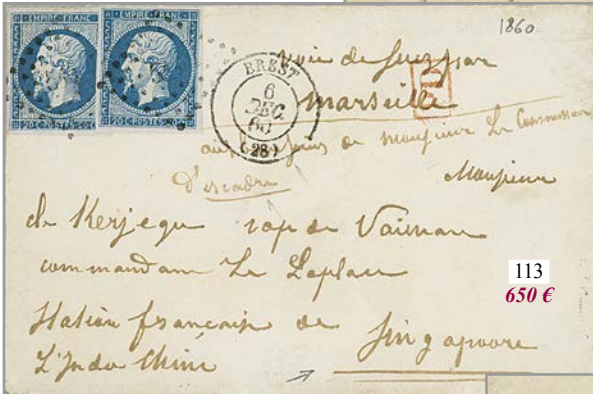 1860
EMPIRE FRANC
EMPIRE FRANC
20 C·POSTES·20 C
20 C·POSTES·20 C
BREST
6
DEC.
60
(28)
voie de Suez par
Marseille
PD
aux soins de monsieur Le Commissaire
D'escadre
Monsieur
de Kerjegu cap de Vaisseau
commandant Le Laplace
Station française de
L'Indo Chine
Singapoore
113
650 €